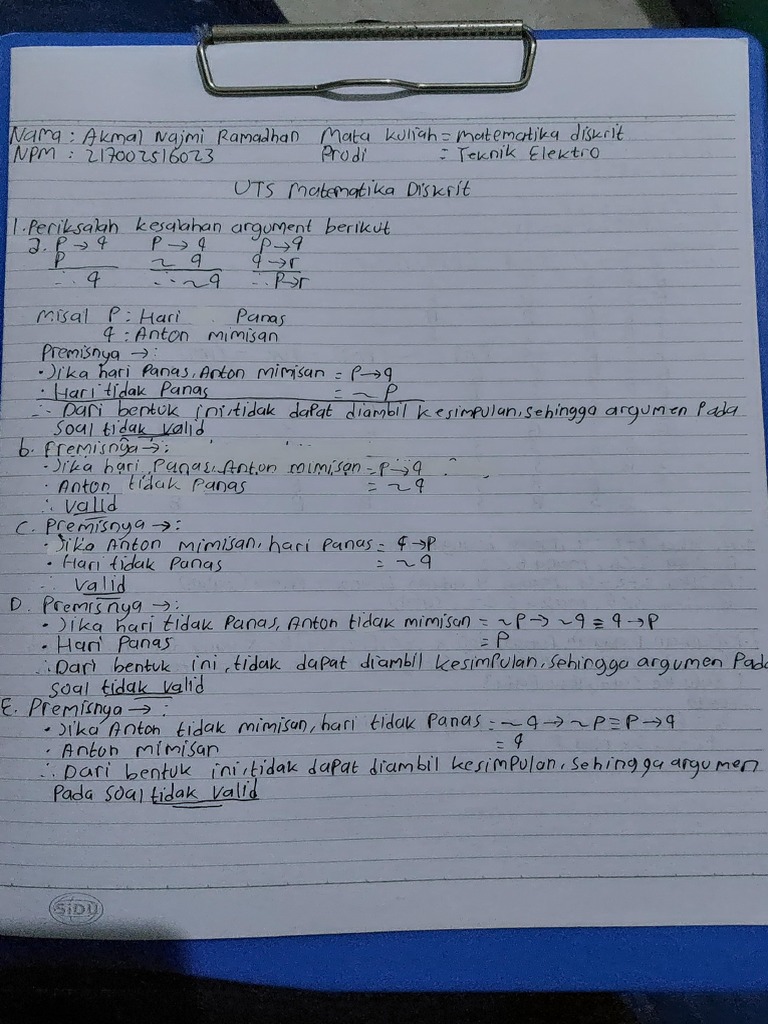 Nama : Akmal Najmi Ramadhan Mata kuliah = matematika diskrit
NPM : 217002516023 Prodi = Teknik Elektro
UTS Matematika Diskrit
1. Periksalah kesalahan argument berikut
a. P → q P → q P → q
P ~ q q → r
∴ q ∴ ~ q ∴ P → r
misal P : Hari Panas
q : Anton mimisan
Premisnya → :
• Jika hari Panas, Anton mimisan = P → q
• Hari tidak Panas = ~ P
∴ Dari bentuk ini, tidak dapat diambil kesimpulan, sehingga argumen Pada
soal tidak valid
b. Premisnya → :
• Jika hari Panas, Anton mimisan = P → q
• Anton tidak Panas = ~ q
∴ valid
C. Premisnya → :
• Jika Anton mimisan, hari Panas = q → P
• Hari tidak Panas = ~ q
∴ valid
D. Premisnya → :
• Jika hari tidak Panas, Anton tidak mimisan = ~ P → ~ q ≡ q → P
• Hari Panas = P
∴ Dari bentuk ini, tidak dapat diambil kesimpulan, sehingga argumen Pada
soal tidak valid
E. Premisnya → :
• Jika Anton tidak mimisan, hari tidak Panas = ~ q → ~ P ≡ P → q
• Anton mimisan = q
∴ Dari bentuk ini, tidak dapat diambil kesimpulan, sehingga argumen
Pada soal tidak valid
SiDU